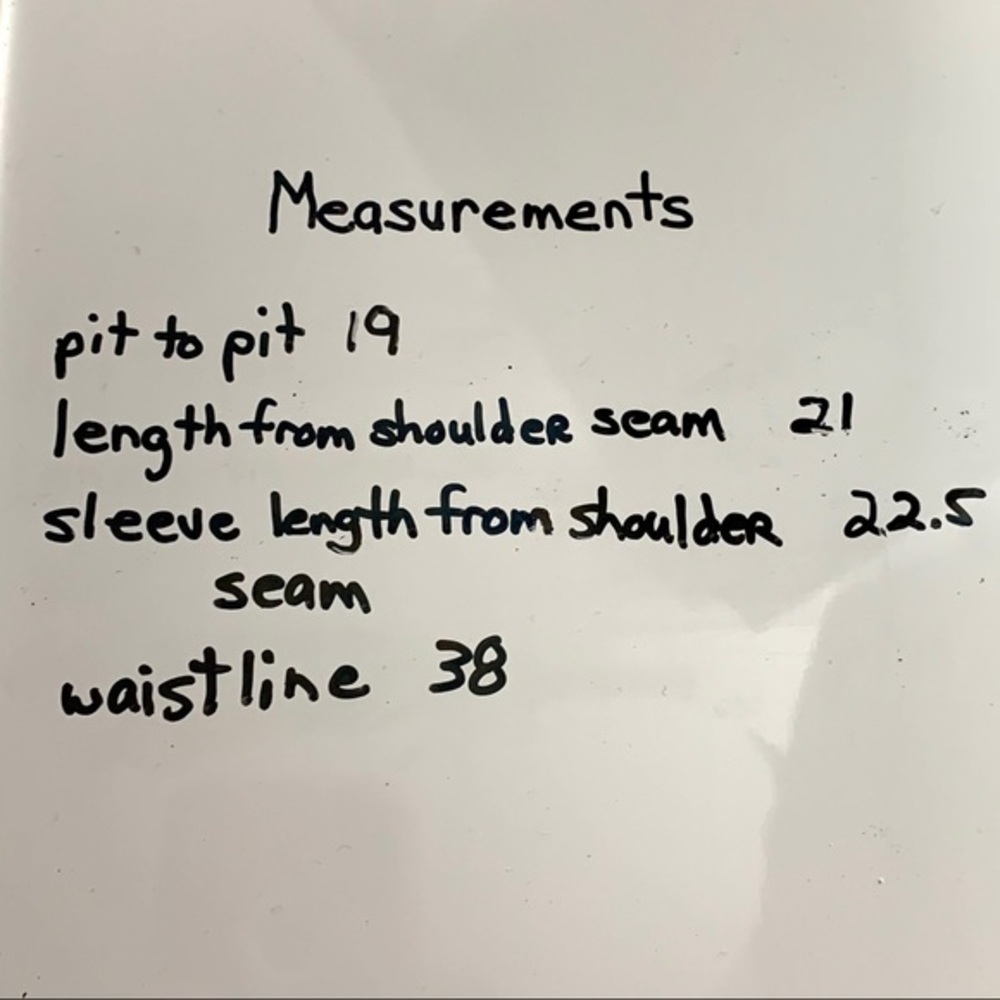 Measurements
pit to pit 19
length from shoulder seam 21
sleeve length from shoulder 22.5
seam
waistline 38